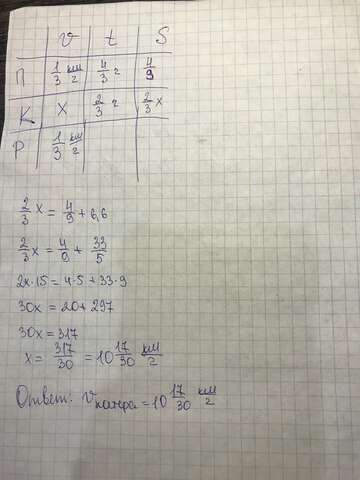 v t S
П 1/3 км/г 4/3 г 4/9
К x 2/3 г 2/3 x
Р 1/3 км/г
2/3 x = 4/9 + 6,6
2/3 x = 4/9 + 33/5
2x·15 = 4·5 + 33·9
30x = 20 + 297
30x = 317
x = 317/30 = 10 17/30 км/г
Ответ: Vкатера = 10 17/30 км/г